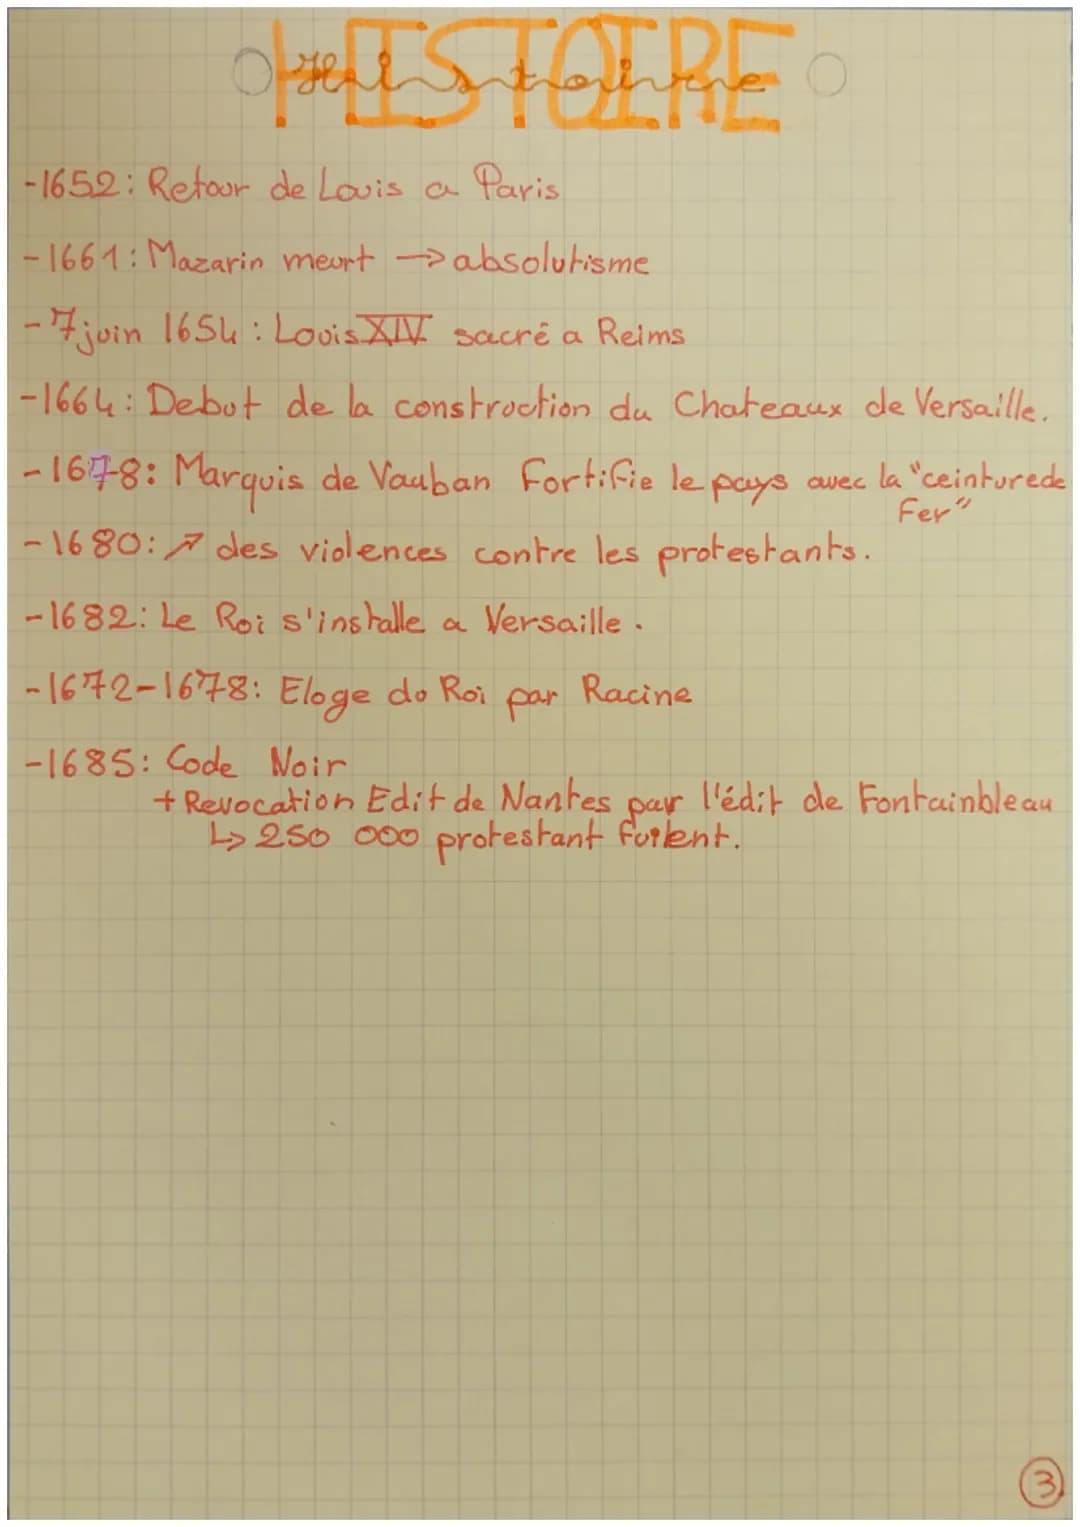 HISTOIRE
Histoire
-1652: Retour de Louis a Paris
-1661: Mazarin meurt → absolutisme
-7 juin 1654: Louis XIV sacré a Reims
-1664: Debut de la construction du Chateaux de Versaille.
-1678: Marquis de Vauban Fortifie le pays avec la "ceinture de
Fer"
-1680: ↗ des violences contre les protestants.
-1682: Le Roi s'installe a Versaille.
-1672-1678: Eloge du Roi par Racine
-1685: Code Noir
+ Revocation Edit de Nantes par l'édit de Fontainbleau
↳ 250 000 protestant fuient.
3